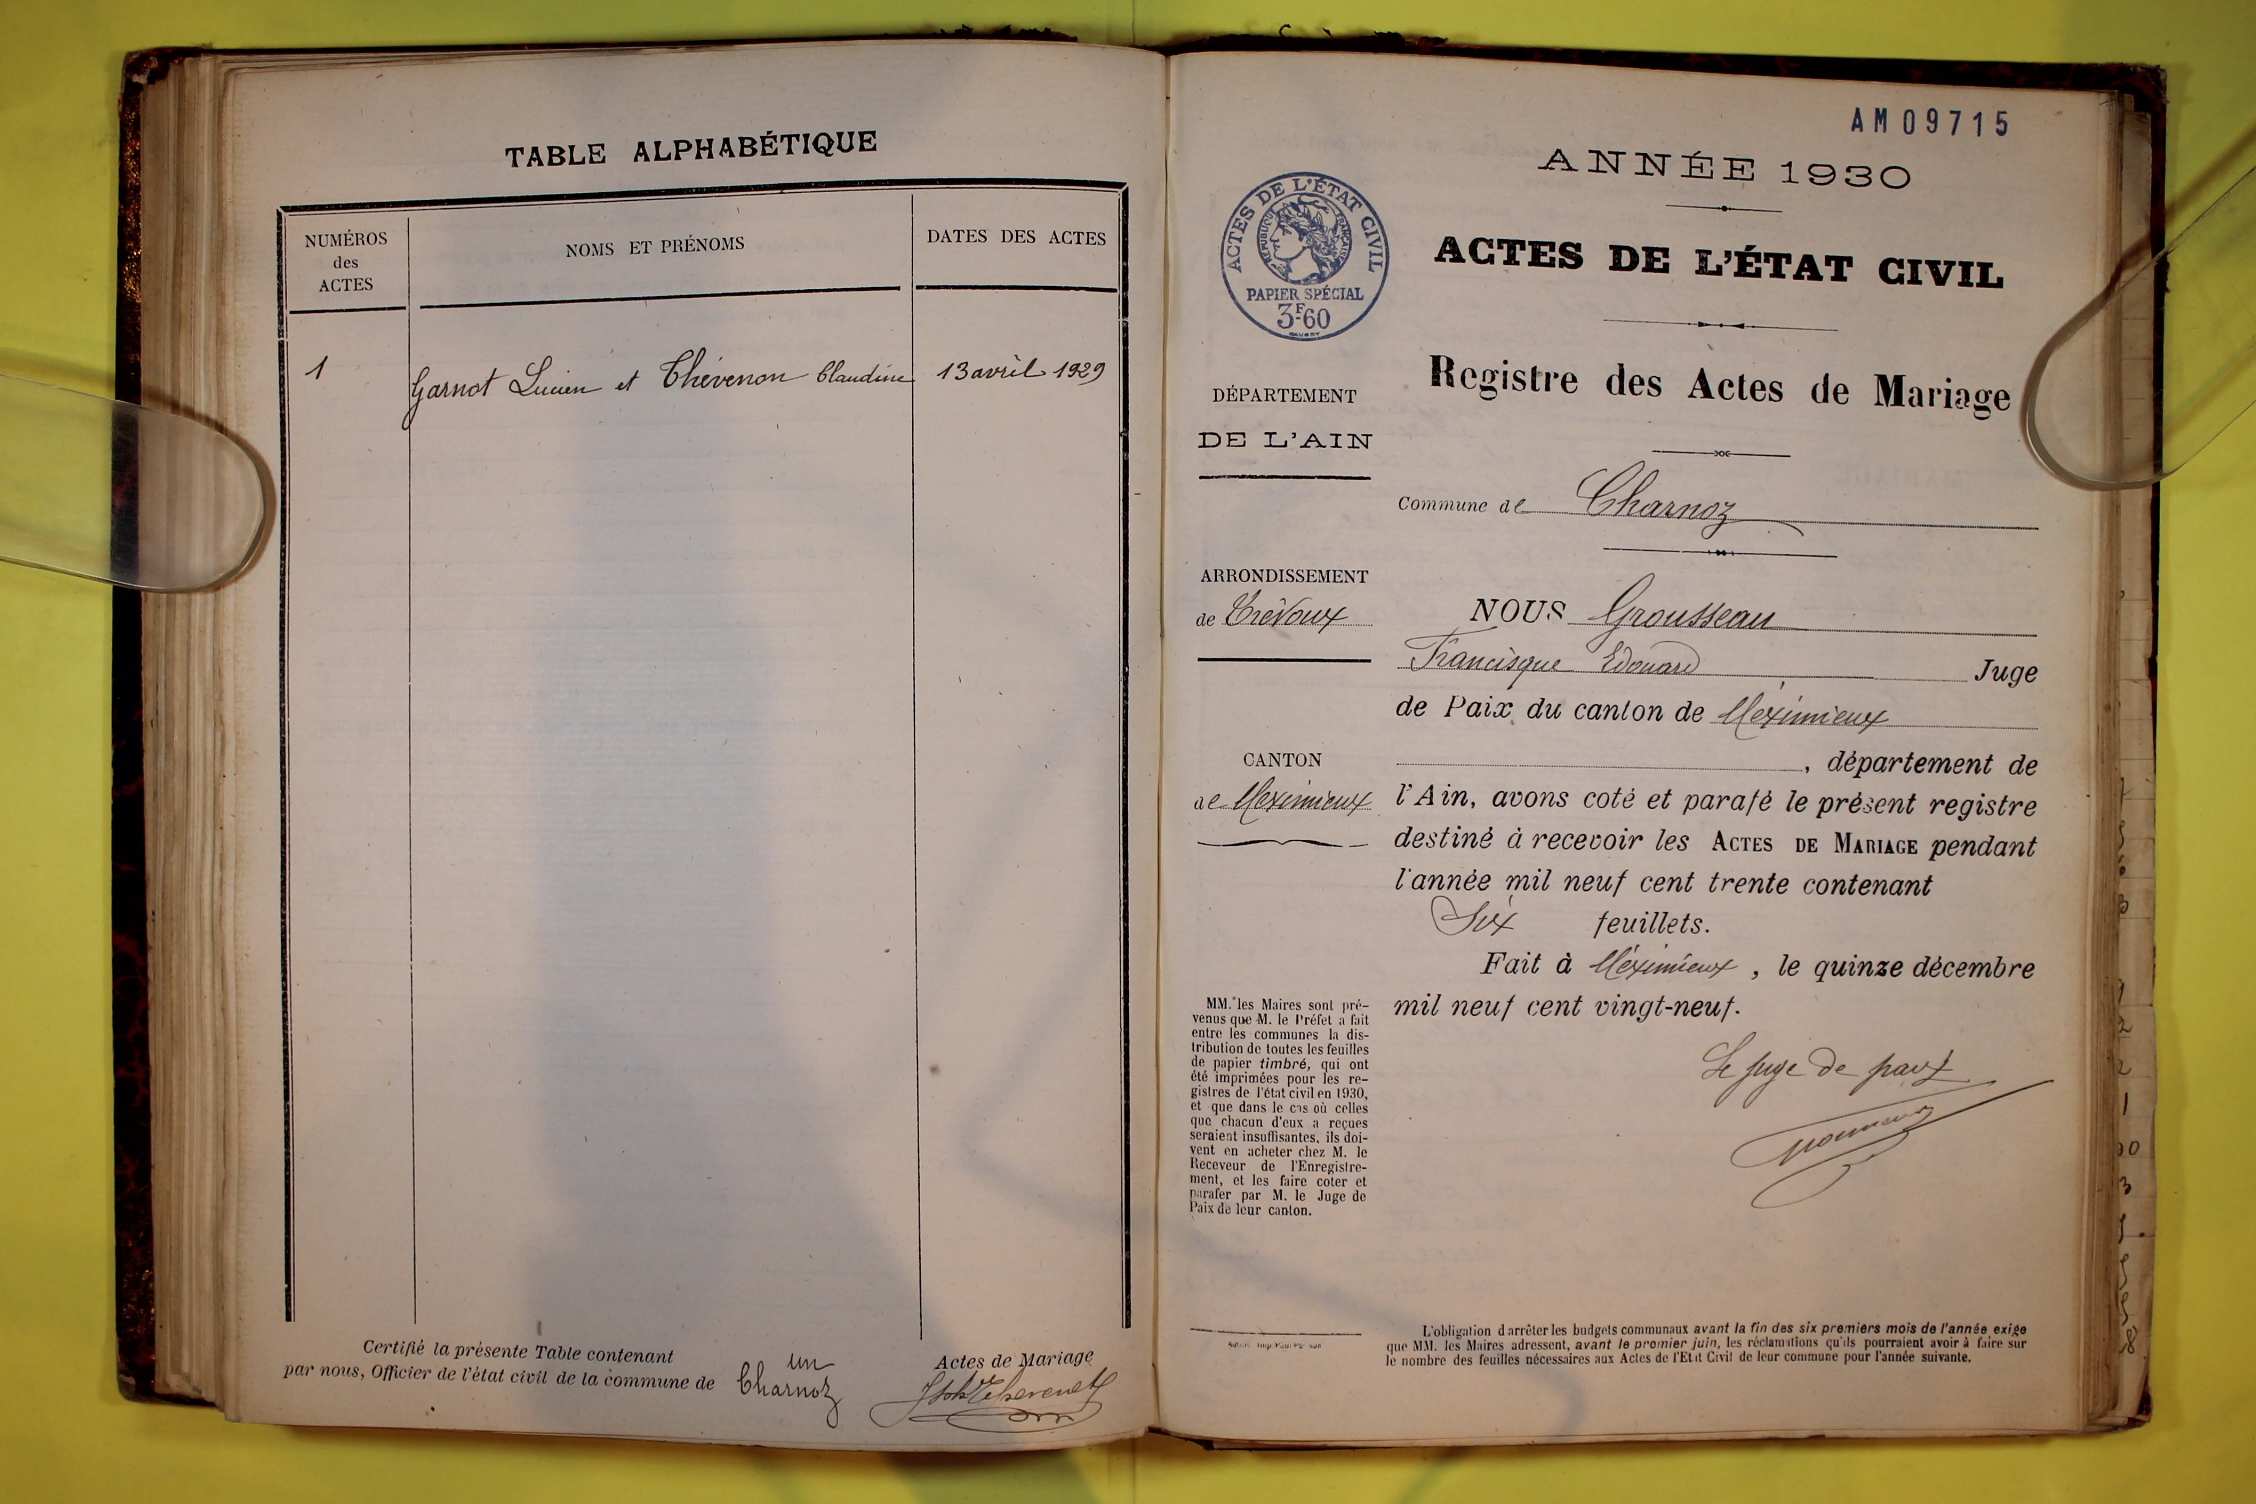 TABLE ALPHABÉTIQUE
NUMÉROS
des
ACTES
NOMS ET PRÉNOMS
DATES DES ACTES
1 Garnot Lucien et Thévenon Claudine 13 avril 1929
Certifié la présente Table contenant un Actes de Mariage
par nous, Officier de l'état civil de la commune de Charnoz
AM09715
ANNÉE 1930
ACTES DE L'ÉTAT CIVIL
RÉPUBLIQUE FRANÇAISE
PAPIER SPÉCIAL
3F.60
ACTES DE L'ÉTAT CIVIL
Registre des Actes de Mariage
DÉPARTEMENT
DE L'AIN
Commune de Charnoz
ARRONDISSEMENT
de Trévoux
CANTON
de Meximieux
NOUS Grousseau
Francisque Edouard Juge
de Paix du canton de Méximieux
, département de
l'Ain, avons coté et parafé le présent registre
destiné à recevoir les ACTES DE MARIAGE pendant
l'année mil neuf cent trente contenant
Six feuillets.
Fait à Méximieux, le quinze décembre
mil neuf cent vingt-neuf.
Le juge de paix
MM. les Maires sont pré-
venus que M. le Préfet a fait
entre les communes la dis-
tribution de toutes les feuilles
de papier timbré, qui ont
été imprimées pour les re-
gistres de l'état civil en 1930,
et que dans le cas où celles
que chacun d'eux a reçues
seraient insuffisantes, ils doi-
vent en acheter chez M. le
Receveur de l'Enregistre-
ment, et les faire coter et
parafer par M. le Juge de
Paix de leur canton.
L'obligation d'arrêter les budgets communaux avant la fin des six premiers mois de l'année exige
que MM. les Maires adressent, avant le premier juin, les réclamations qu'ils pourraient avoir à faire sur
le nombre des feuilles nécessaires aux Actes de l'Etat Civil de leur commune pour l'année suivante.